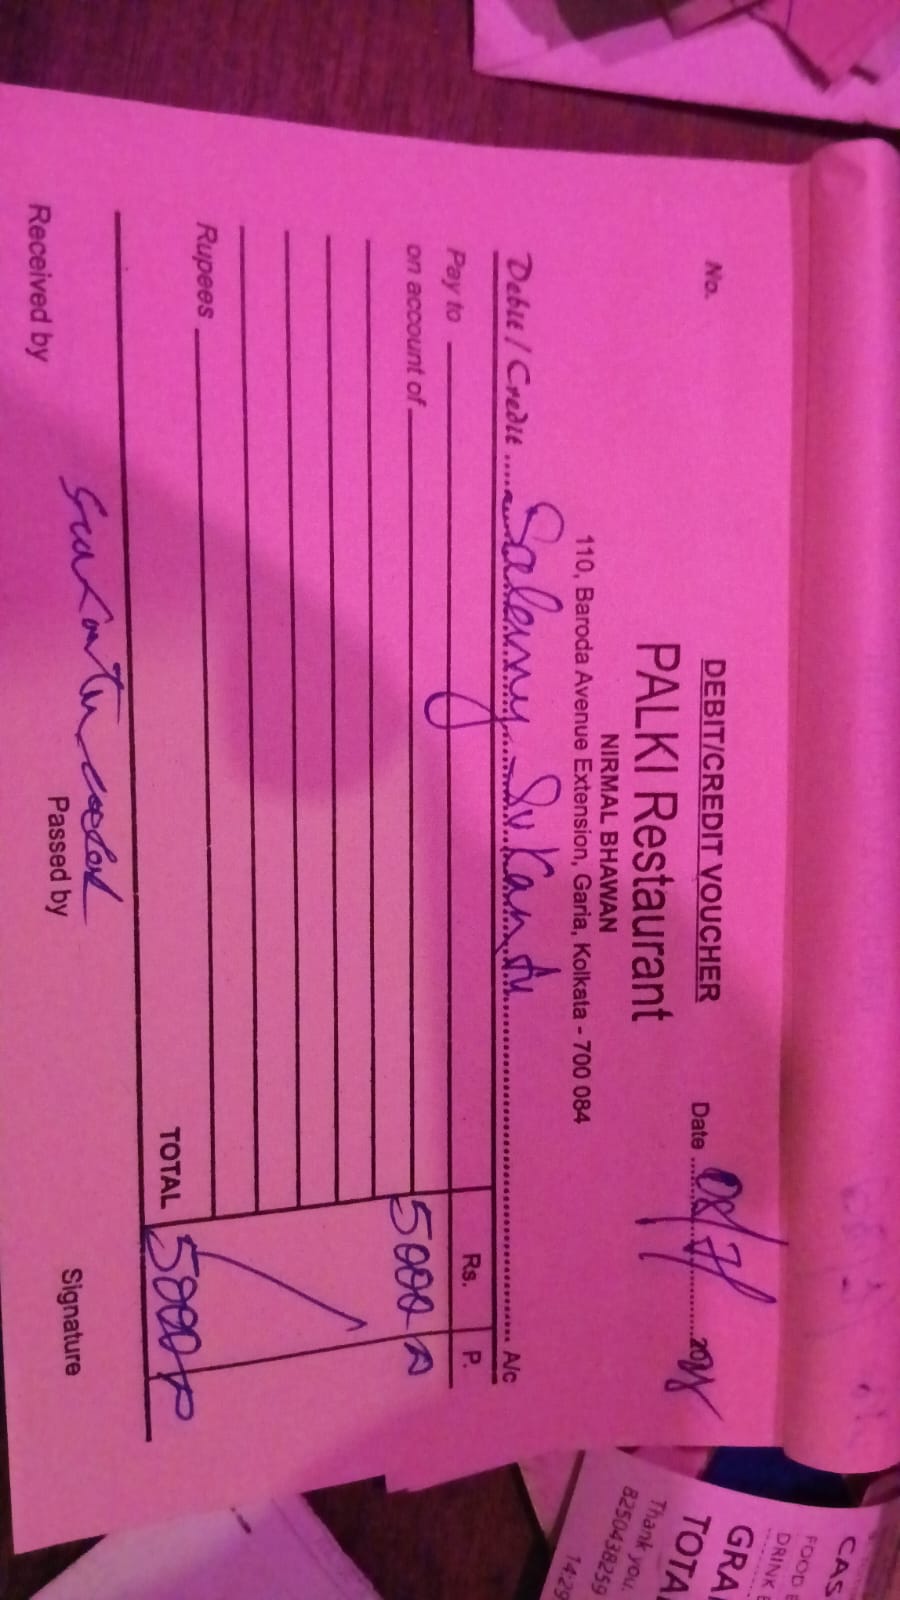 No.
DEBIT/CREDIT VOUCHER
PALKI Restaurant
NIRMAL BHAWAN
110, Baroda Avenue Extension, Garia, Kolkata - 700 084
Date
Debit / Credit Salary - Sukanta A/c
Pay to Rs. P.
on account of 5000
Rupees
TOTAL 5000
Received by Passed by Signature
CAS
FOOD
DRINK
GRA
TOTA
Thank you.
8250438259
14:29